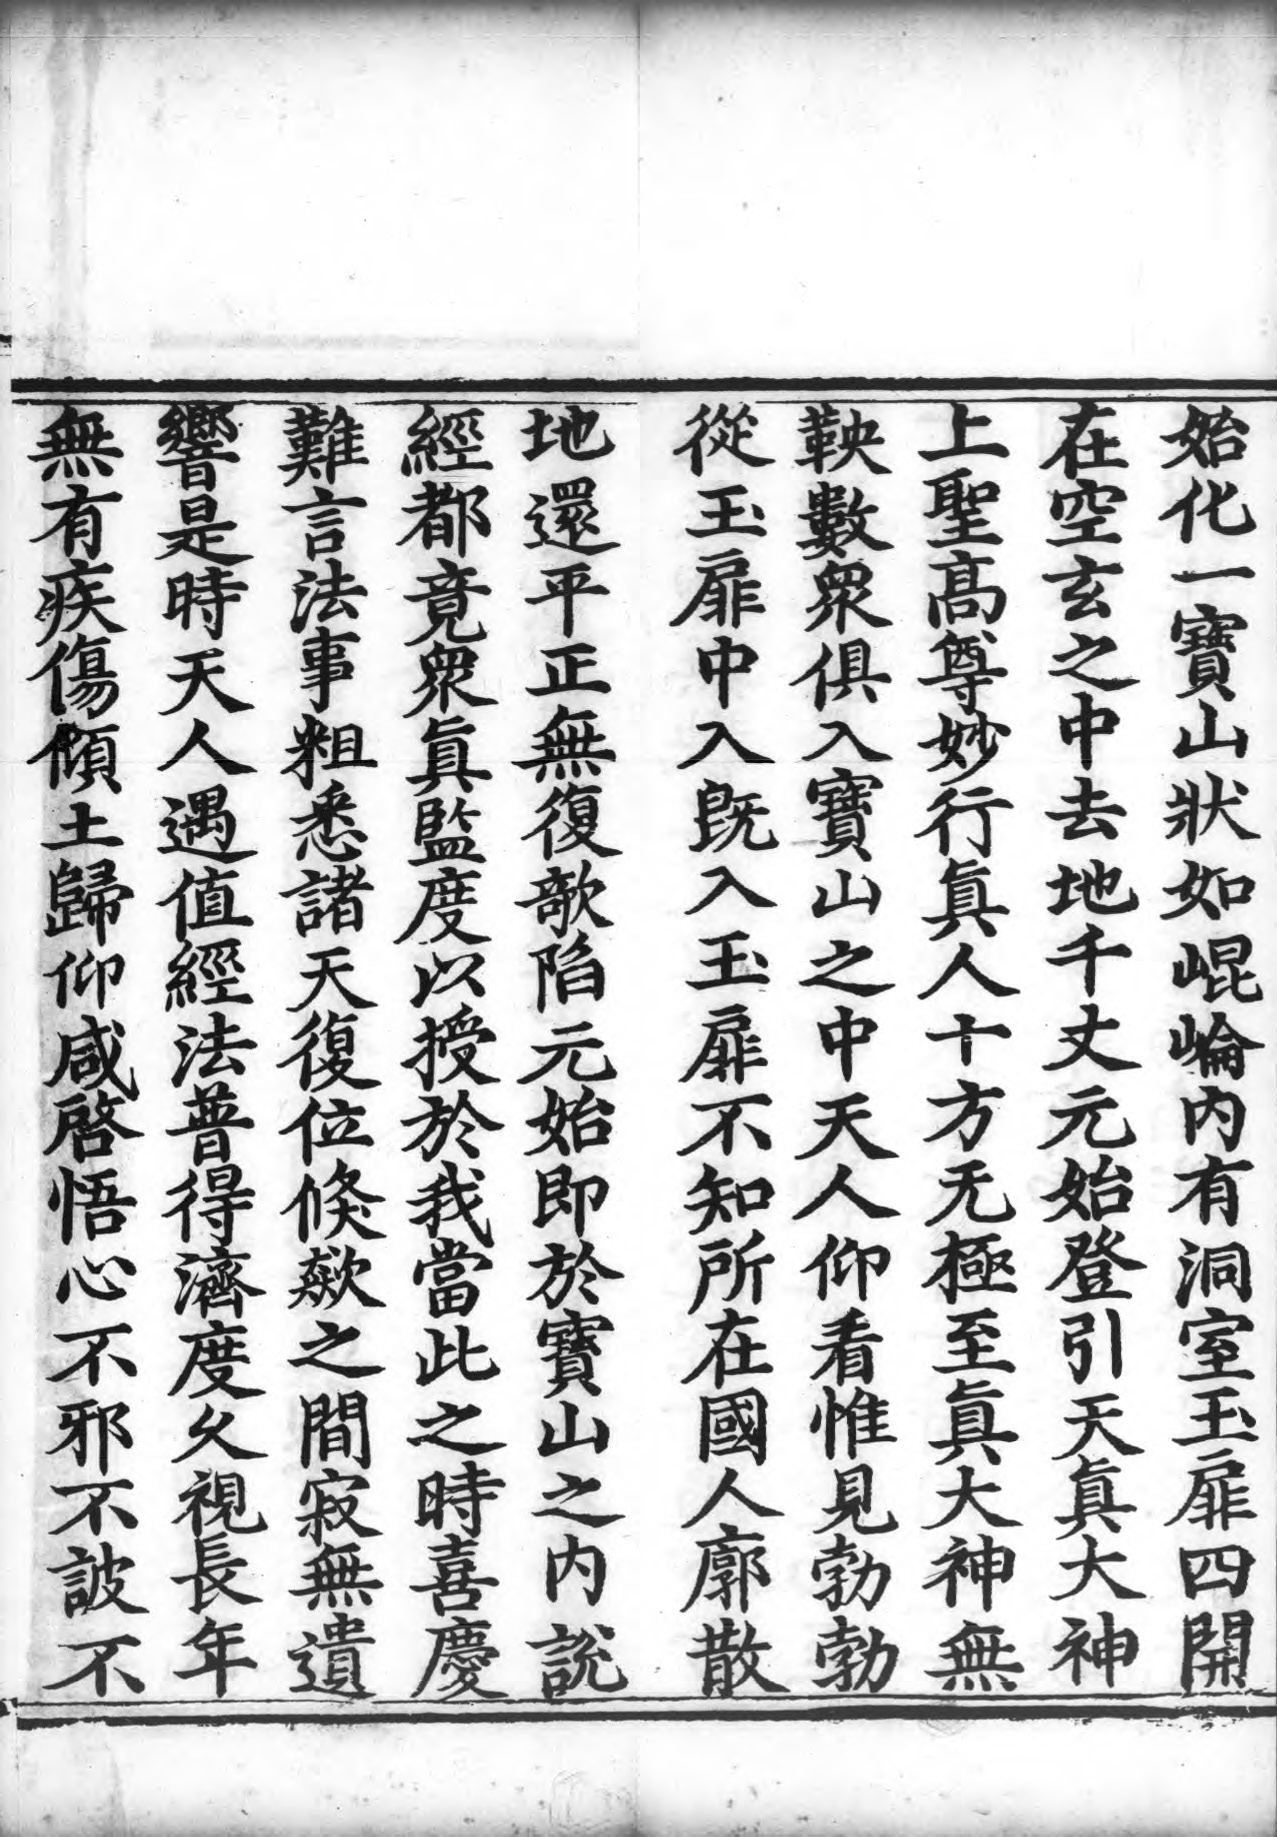 始化一寶山狀如崐崘內有洞室玉扉四開
在空玄之中去地千丈元始登引天真大神
上聖髙尊妙行真人十方无極至真大神無
鞅數衆俱入寶山之中天人仰看惟見勃勃
從玉扉中入旣入玉扉不知所在國人廓散
地還平正無復敧陷元始即於寶山之內說
經都竟衆真監度以授於我當此之時喜慶
難言法事粗悉諸天復位倐歘之間寂無遺
響是時天人遇值經法普得濟度乆視長年
無有疾傷傾土歸仰咸啓悟心不邪不詖不